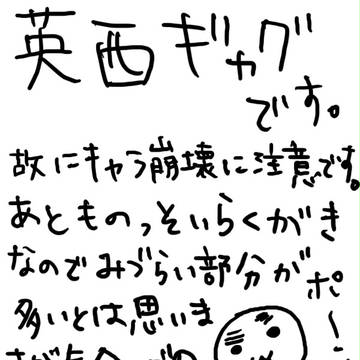 英西ギャグ
です。
故にキャラ崩壊に注意です。
あとものっそいらくがき
なのでみづらい部分が
多いとは思いま
ポ〜